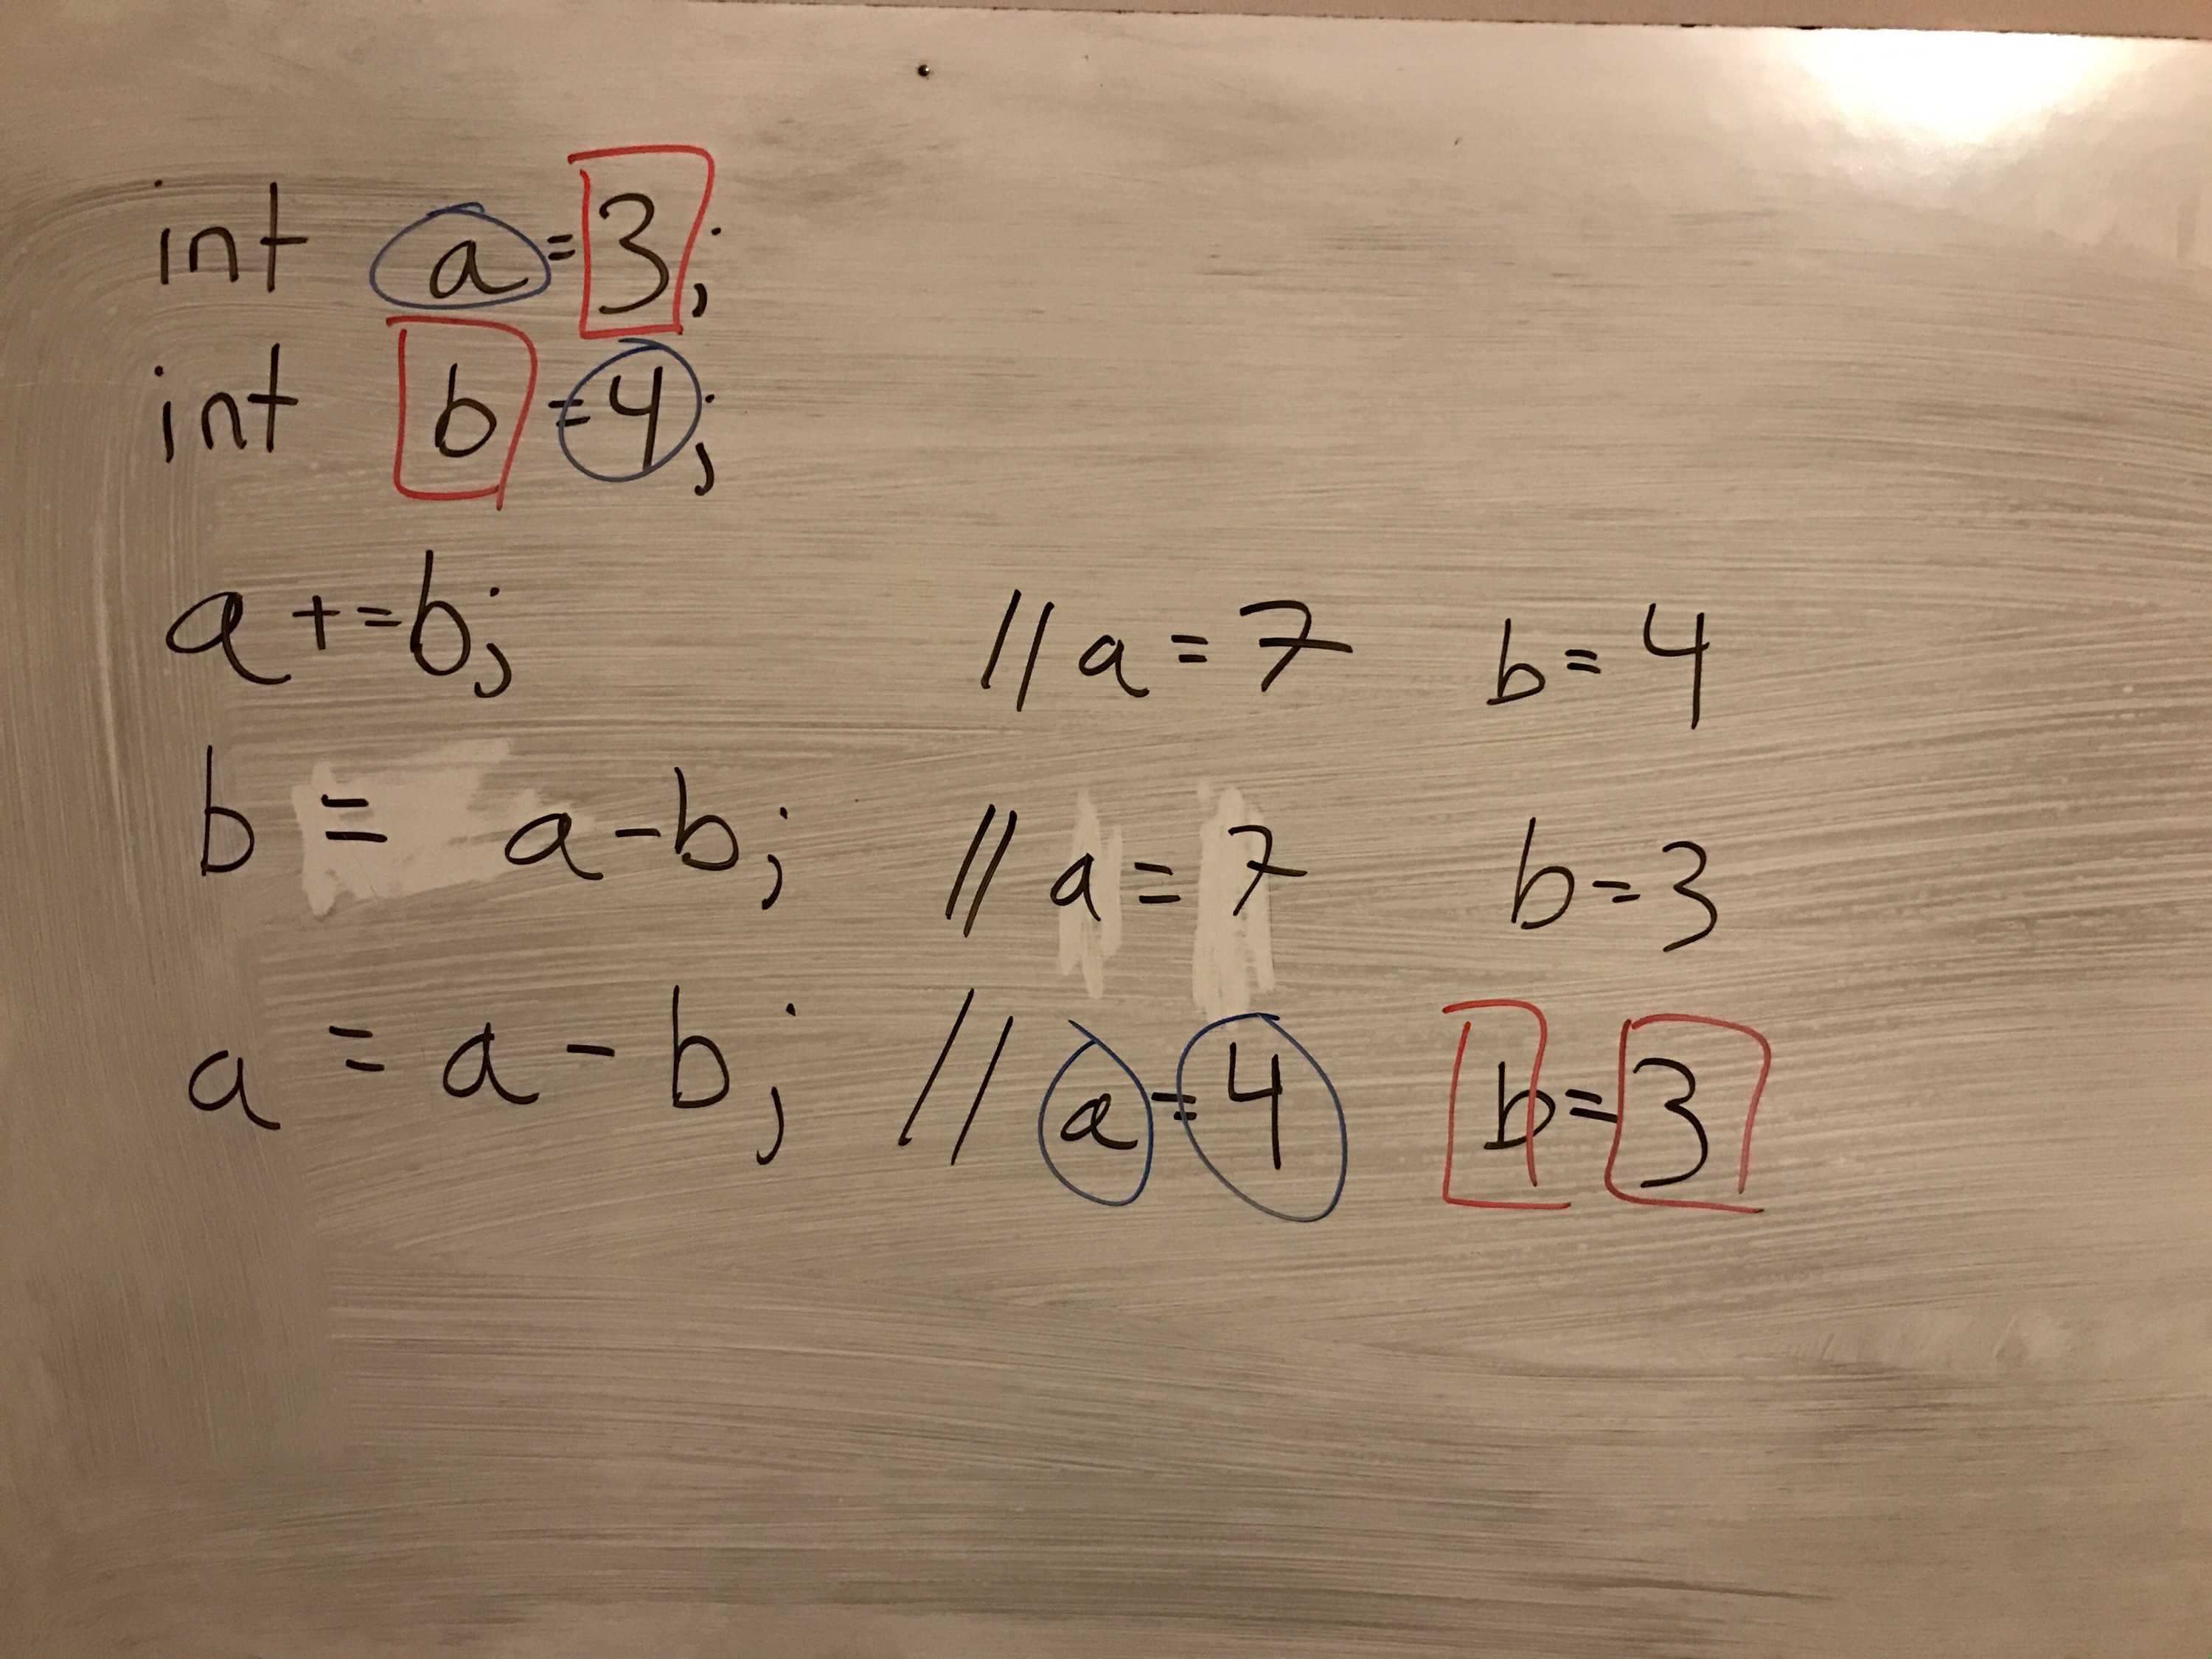 int a=3;
int b=4;
a+=b; // a=7 b=4
b = a-b; // a=7 b=3
a = a - b; // a=4 b=3